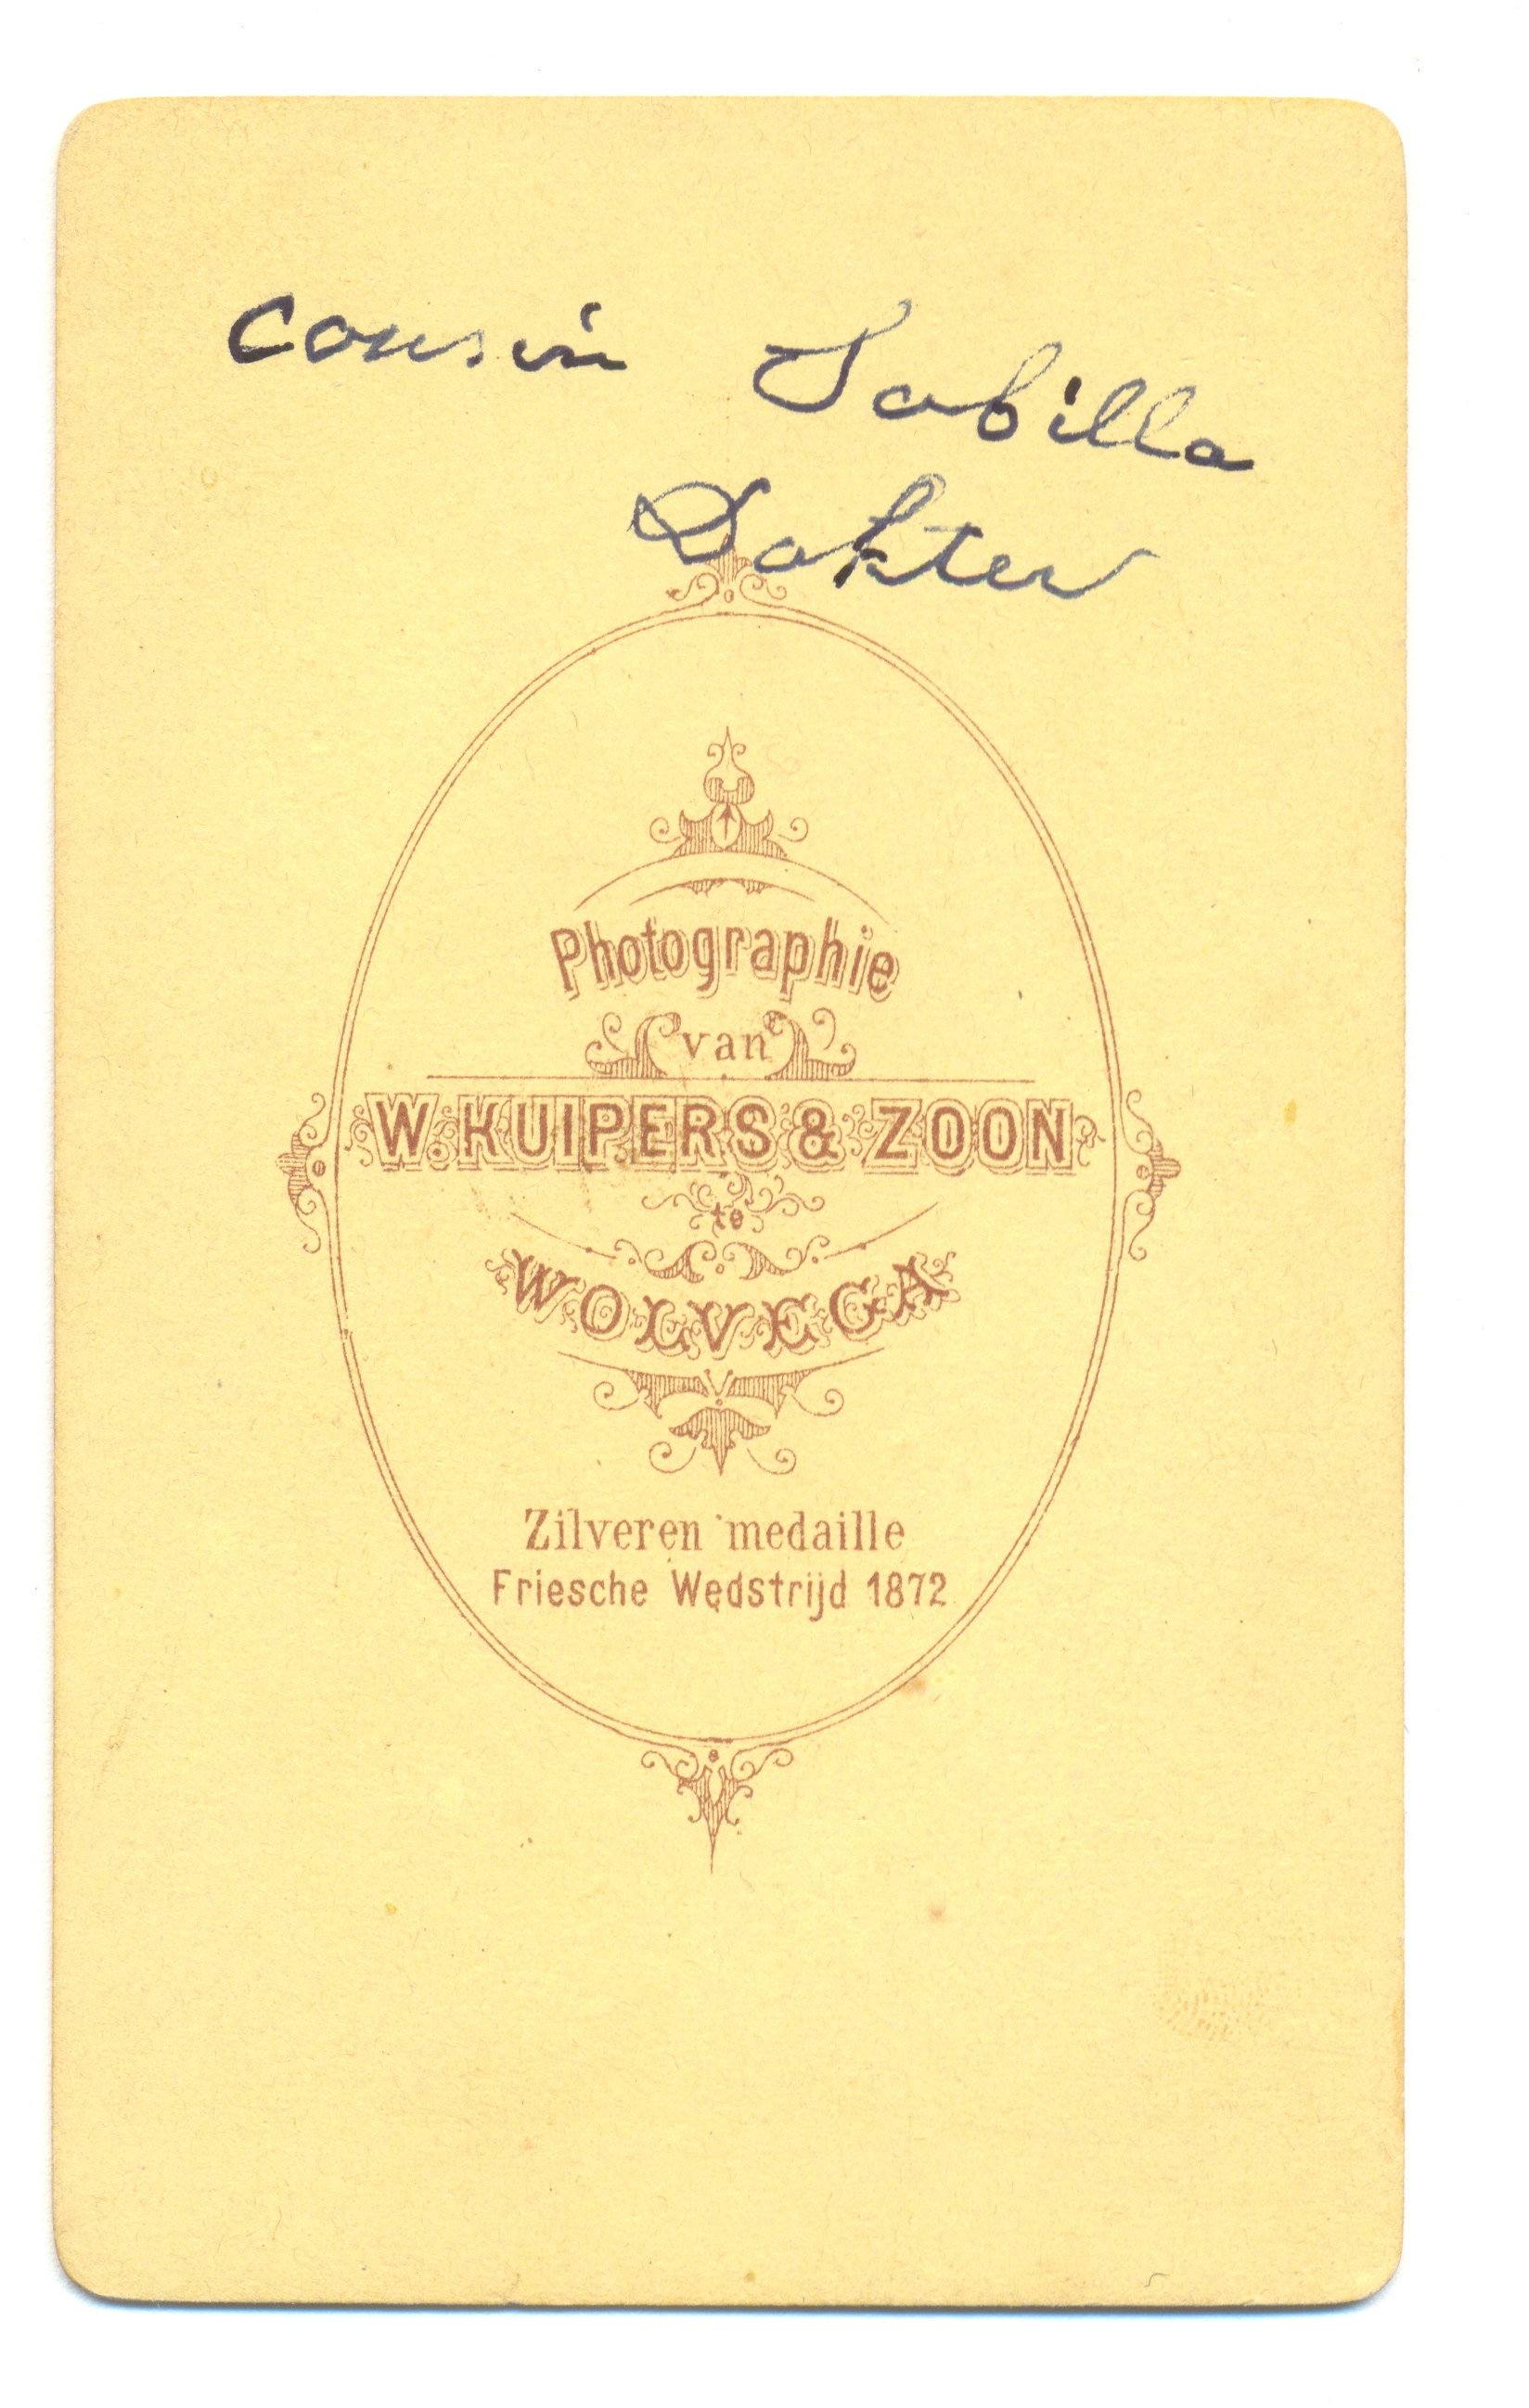 cousin Sabilla
Dokter
Photographie
van
W. KUIPERS & ZOON
te
WOLVEGA
Zilveren medaille
Friesche Wedstrijd 1872